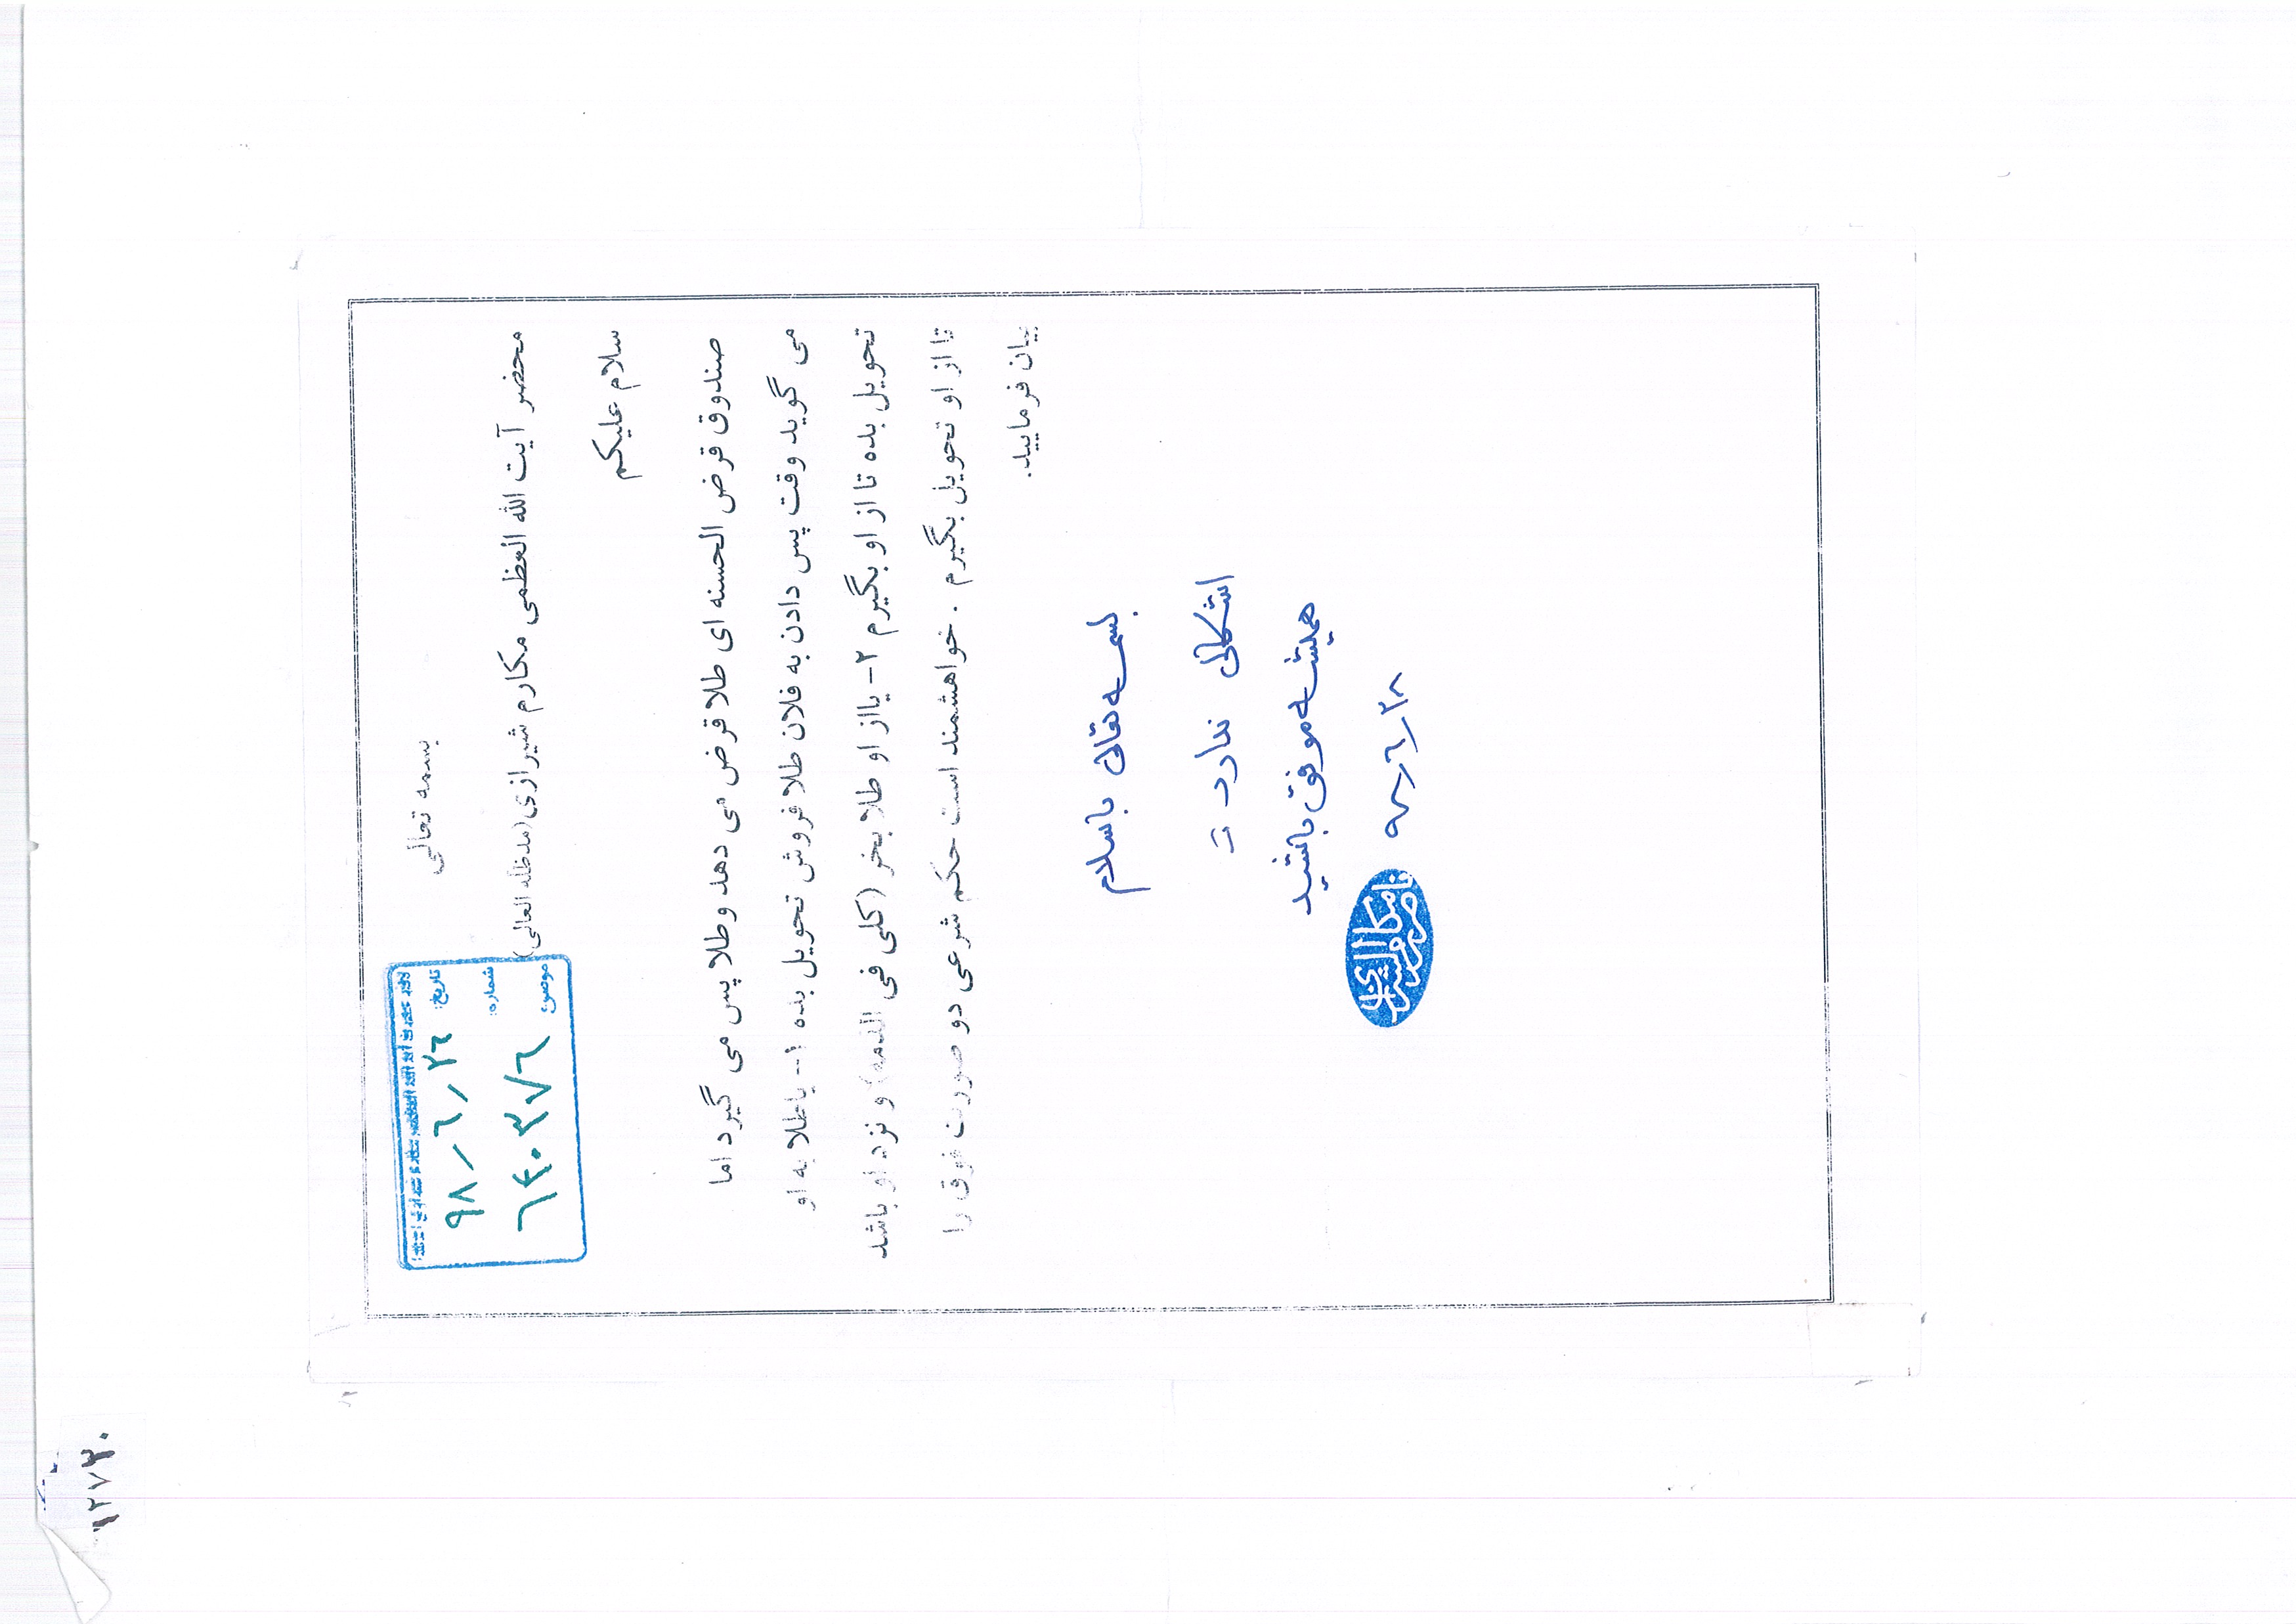 بسمه تعالی
محضر آیت الله العظمی مکارم شیرازی(مدظله العالی)
تاریخ: ۹۸/۶/۲۶
شماره:
موضوع ۶۴۰۳۷۶
سلام علیکم
صندوق قرض الحسنه ای طلا قرض می دهد و طلا پس می گیرد اما
می گوید وقت پس دادن به فلان طلا فروش تحویل بده ۱- یا طلا به او
تحویل بده تا از او بگیرم ۲- یا از او طلا بخر (کلی فی الذمه) و نزد او باشد
تا از او تحویل بگیرم . خواهشمند است حکم شرعی دو صورت فوق را
بیان فرمایید.
بسمه تعالی با سلام
اشکالی ندارد
همیشه موفق باشید
۹۸/۶/۲۸
ناصر مکارم الشیرازی
۱۲۷۳۰